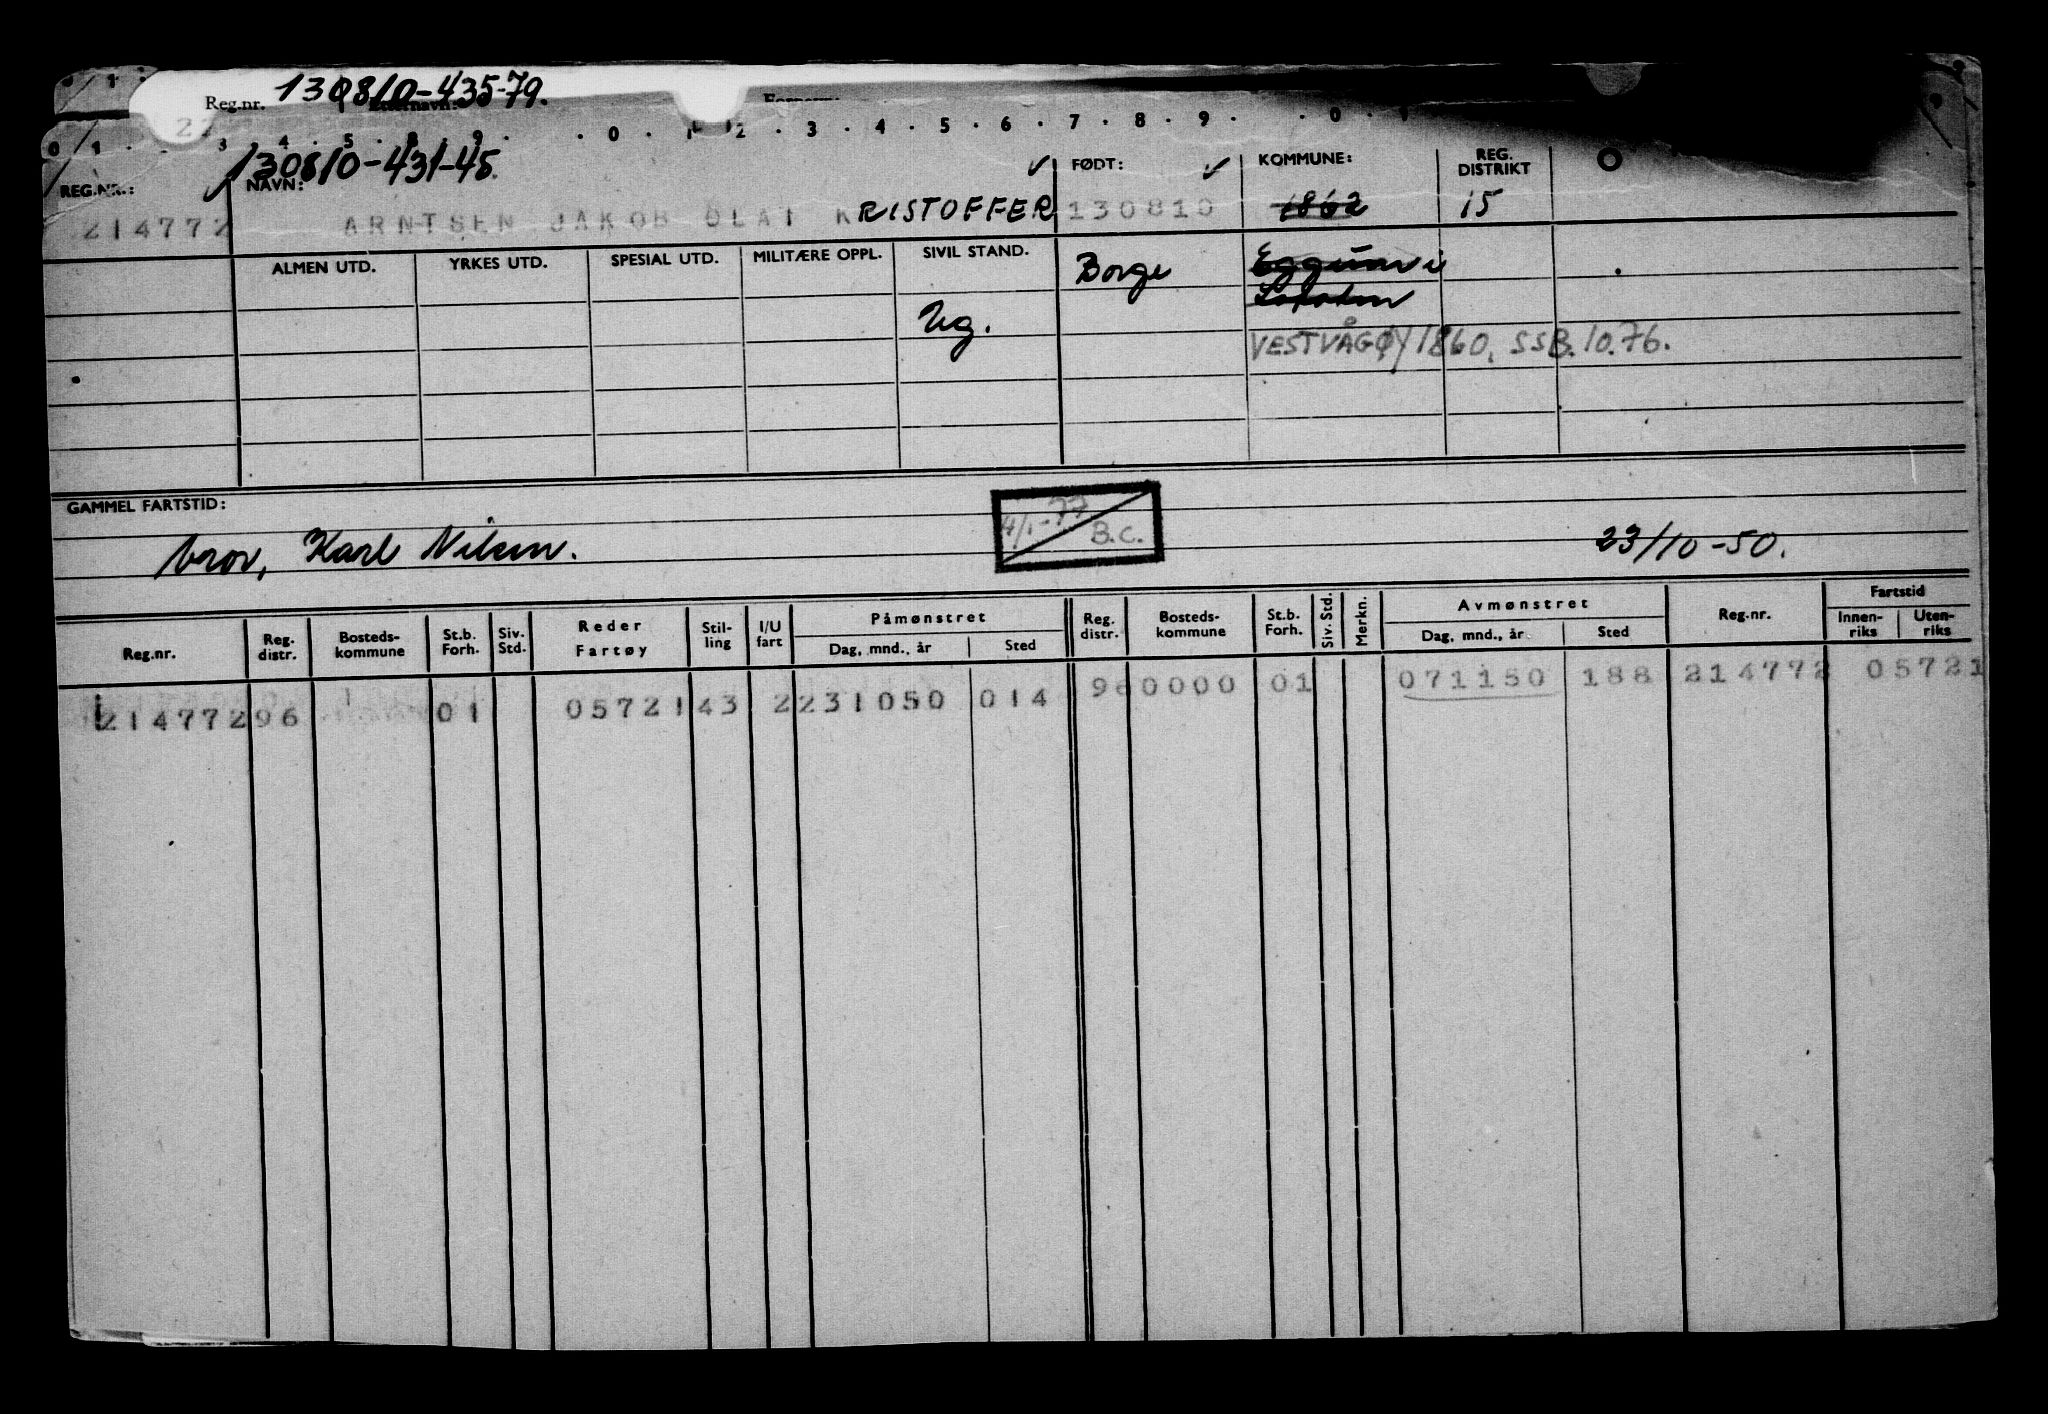 Reg.nr. 130810-435-79.
0 1 . . 3 . 4 . 5 . 8 . 9 . . 0 . 1 . 2 . 3 . 4 . 5 . 6 . 7 . 8 . 9 . . 0 . 1
130810-431-45.
REG.NR.: NAVN: FØDT: KOMMUNE: REG. DISTRIKT
214772 ARNTSEN JAKOB OLAI KRISTOFFER 130810 1862 15
ALMEN UTD. YRKES UTD. SPESIAL UTD. MILITÆRE OPPL. SIVIL STAND.
Borge Eggum i
Lofoten
Ug.
VESTVÅGØY 1860. SSB.10.76.
GAMMEL FARTSTID:
4/1-77 B.C.
bror, Karl Nilsen. 23/10-50.
Reg.nr. Reg. distr. Bosteds- kommune St.b. Forh. Siv. Std. Reder Fartøy Stil- ling I/U fart Påmønstret Dag, mnd., år Sted Reg. distr. Bosteds- kommune St.b. Forh. Siv. Std. Merkn. Avmønstret Dag, mnd., år Sted Reg.nr. Fartstid Innen- riks Uten- riks
214772 96 01 05721 43 2 231050 014 96 0000 01 071150 188 214772 05721